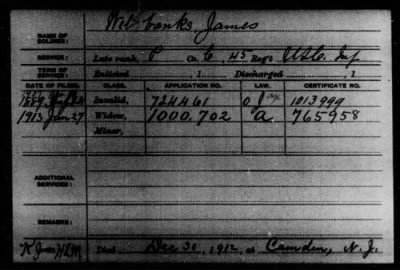 NAME OF SOLDIER: Wilbanks, James
SERVICE: Late rank, P Co. C, 45 Reg't U.S.C. Inf
TERM OF SERVICE: Enlisted , 1 Discharged , 1
DATE OF FILING. CLASS. APPLICATION NO. LAW. CERTIFICATE NO.
1889 Invalid, 724461 1013999
1913 Jan 27 Widow, 1000.702 a 765958
Minor,
ADDITIONAL SERVICES:
REMARKS:
Died Dec 30, 1912, at Camden, N. J.